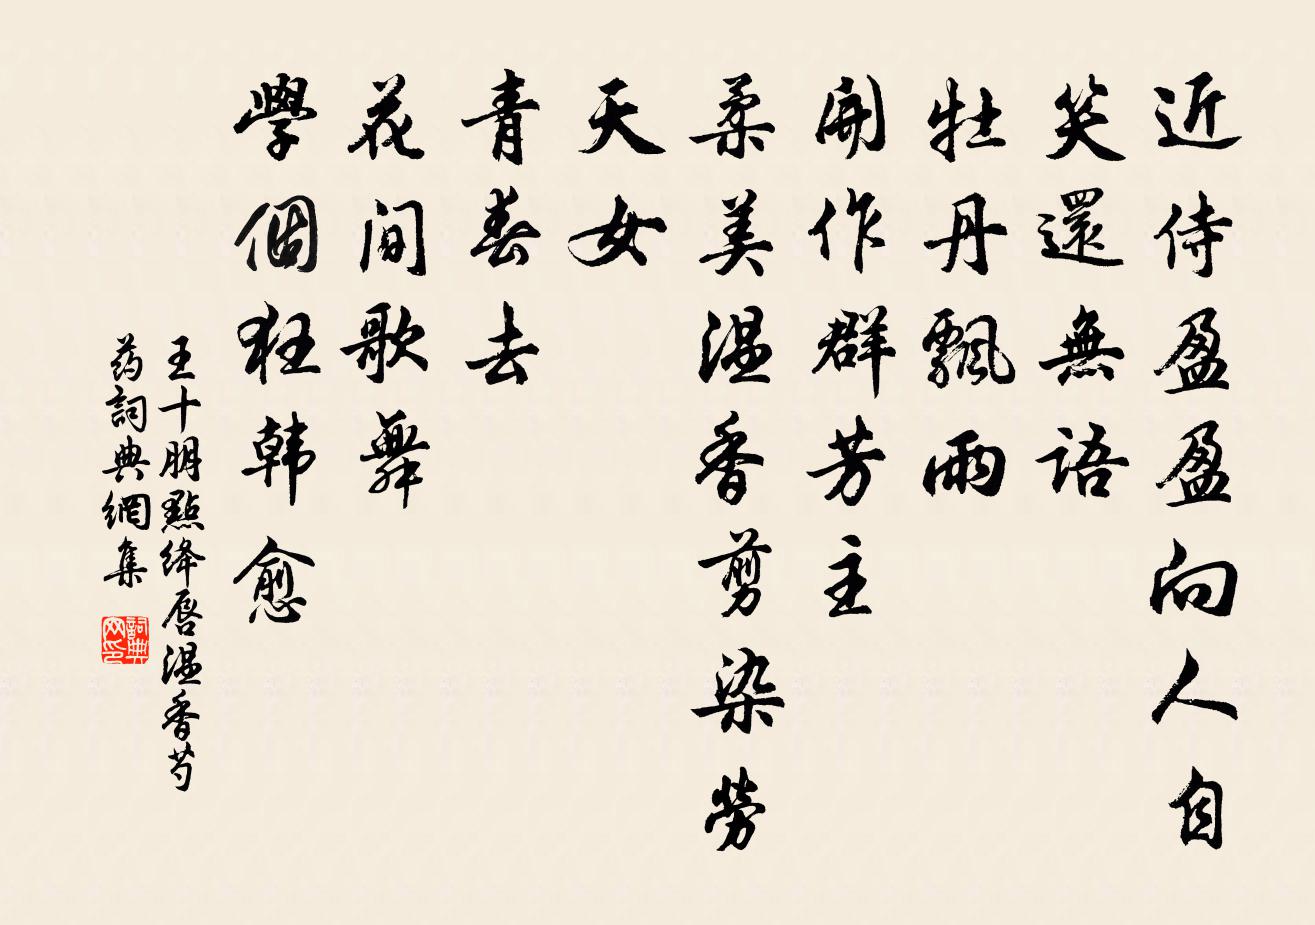 近侍盈盈向人自
笑還無語
牡丹飄雨
開作群芳主
柔美温香剪染勞
天女
青春去
花间歌舞
學個狂韩愈
王十朋點绛唇温香芍
药詞典網集
詞典网印